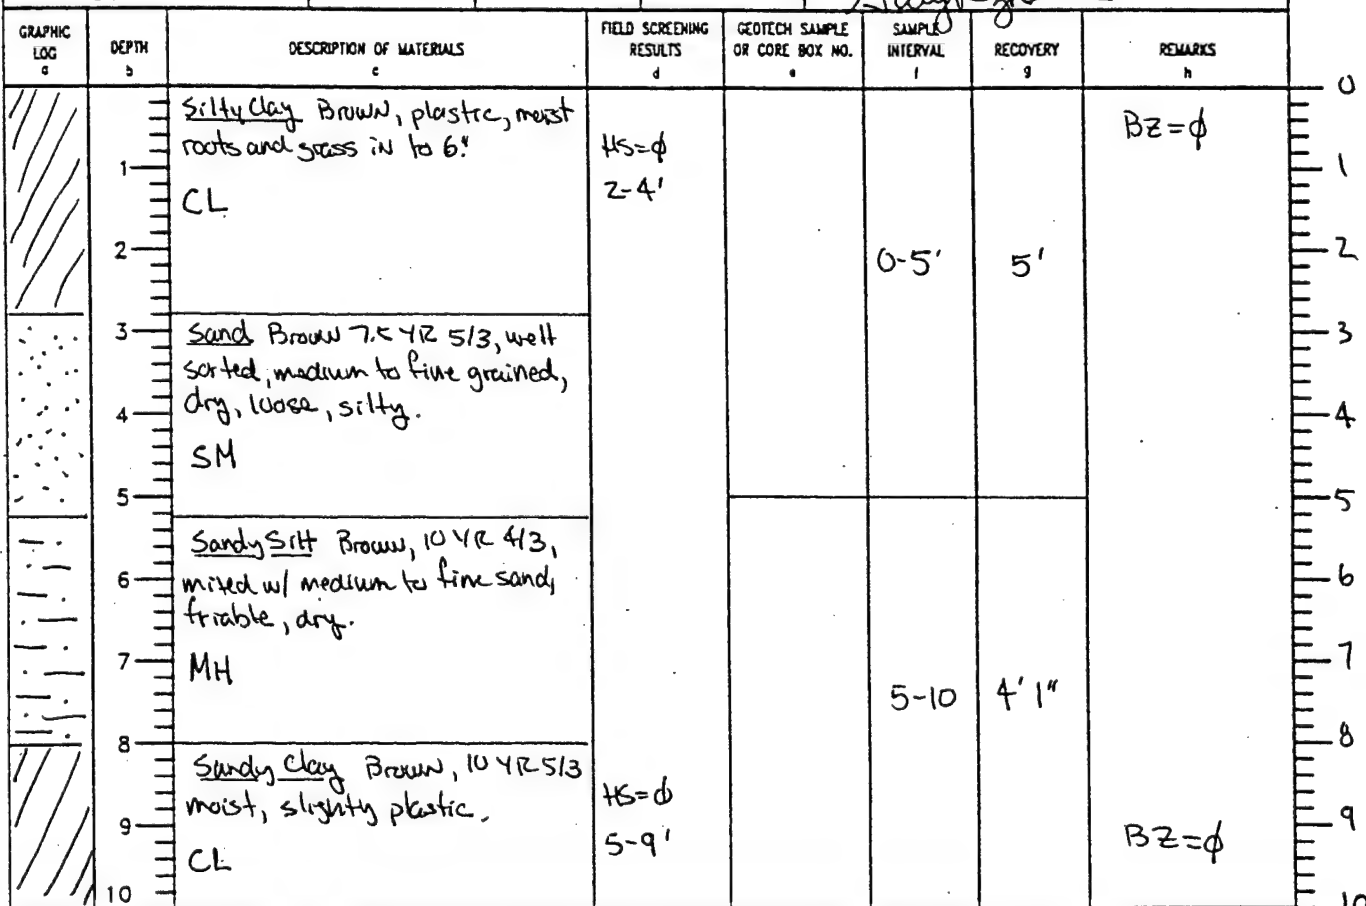 GRAPHIC LOG a
DEPTH b
DESCRIPTION OF MATERIALS c
FIELD SCREENING RESULTS d
GEOTECH SAMPLE OR CORE BOX NO. e
SAMPLE INTERVAL f
RECOVERY g
REMARKS h
0
Silty Clay Brown, plastic, moist
roots and grass in to 6"
CL
HS=ϕ
2-4'
BZ=ϕ
1
1
2
0-5'
5'
2
3
Sand Brown 7.5 YR 5/3, well
sorted, medium to fine grained,
dry, loose, silty.
SM
3
4
4
5
5
Sandy Silt Brown, 10 YR 4/3,
mixed w/ medium to fine sand,
friable, dry.
MH
6
6
7
5-10
4' 1"
7
8
8
Sandy Clay Brown, 10 YR 5/3
moist, slighty plastic.
CL
HS=ϕ
5-9'
BZ=ϕ
9
9
10
10